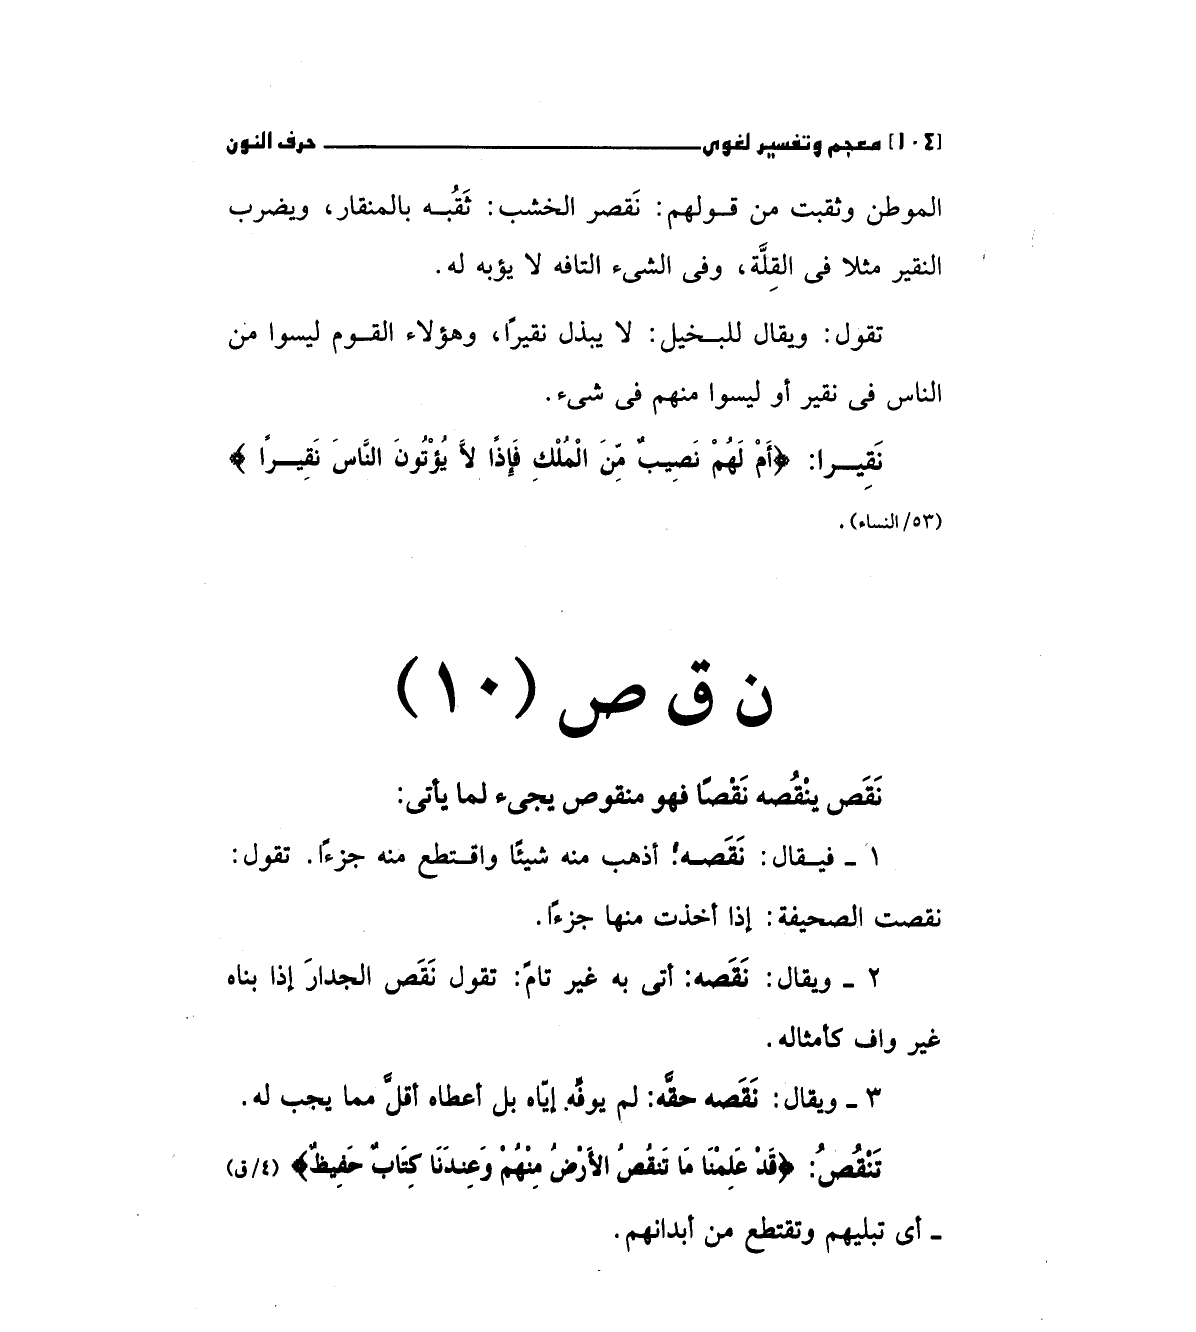 [١٠٤] معجم وتفسير لغوى ـــــــــ حرف النون
الموطن وثقبت من قولهم: نَقصر الخشب: ثَقُبه بالمنقار، ويضرب
النقير مثلا فى القِلَّة، وفى الشىء التافه لا يؤبه له.
تقول: ويقال للبخيل: لا يبذل نقيرًا، وهؤلاء القوم ليسوا من
الناس فى نقير أو ليسوا منهم فى شىء.
نَقِيرا: ﴿أَمْ لَهُمْ نَصِيبٌ مِّنَ الْمُلْكِ فَإِذًا لاَّ يُؤْتُونَ النَّاسَ نَقِيرًا ﴾
(٥٣/ النساء).
ن ق ص (١٠)
نَقَص ينْقُصه نَقْصًا فهو منقوص يجىء لما يأتى:
١ ـ فيقال: نَقَصه: أذهب منه شيئًا واقتطع منه جزءًا. تقول:
نقصت الصحيفة: إذا أخذت منها جزءًا.
٢ ـ ويقال: نَقَصه: أتى به غير تامّ: تقول نَقَص الجدارَ إذا بناه
غير واف كأمثاله.
٣ ـ ويقال: نَقَصه حقَّه: لم يوفِّه إيّاه بل أعطاه أقلَّ مما يجب له.
تَنْقُصُ: ﴿قَدْ عَلِمْنَا مَا تَنقُصُ الأَرْضُ مِنْهُمْ وَعِندَنَا كِتَابٌ حَفِيظٌ﴾ (٤/ ق)
ـ أى تبليهم وتقتطع من أبدانهم.